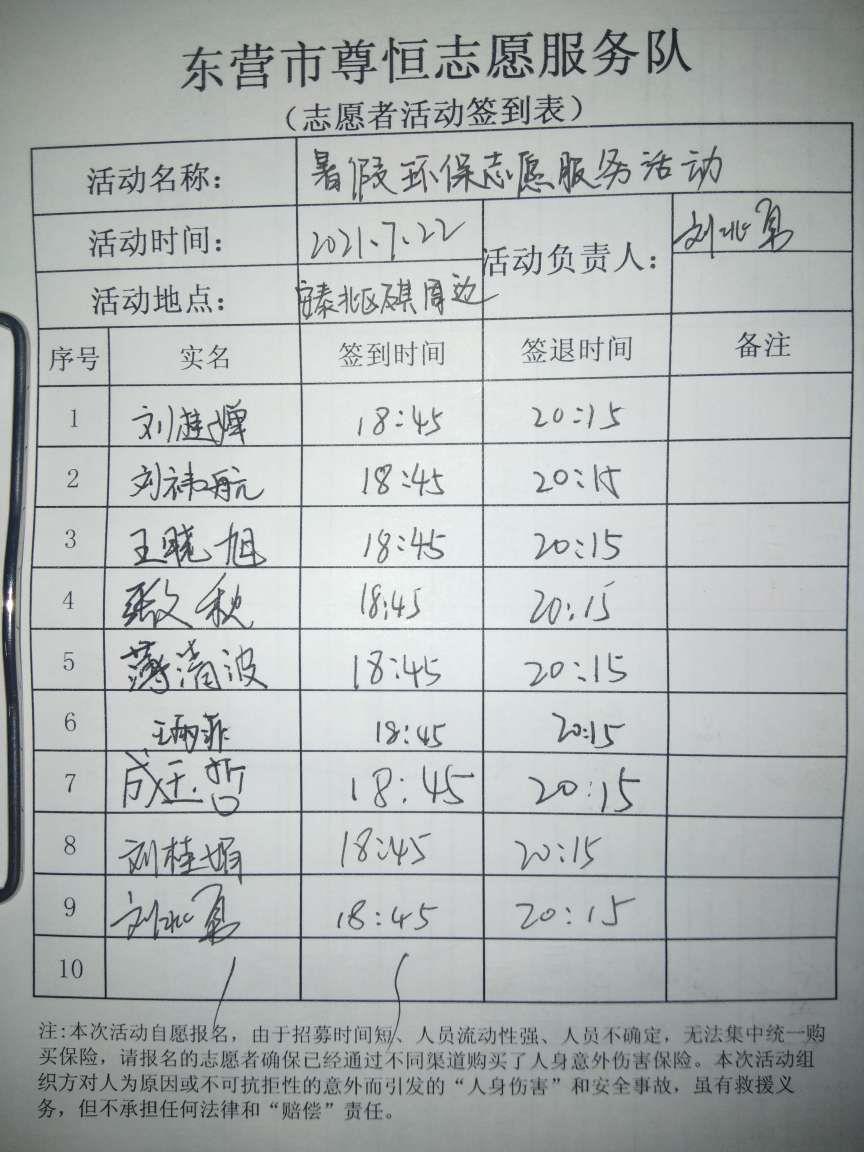 东营市尊恒志愿服务队
（志愿者活动签到表）
活动名称： 暑假环保志愿服务活动
活动时间： 2021.7.22 活动负责人： 刘北勇
活动地点： 安泰北区及其周边
序号 实名 签到时间 签退时间 备注
1 刘桂婵 18:45 20:15
2 刘祎航 18:45 20:15
3 王晓旭 18:45 20:15
4 张文秋 18:45 20:15
5 薄清波 18:45 20:15
6 王炳菲 18:45 20:15
7 成玉哲 18:45 20:15
8 刘桂娟 18:45 20:15
9 刘北勇 18:45 20:15
10
注:本次活动自愿报名，由于招募时间短、人员流动性强、人员不确定，无法集中统一购
买保险，请报名的志愿者确保已经通过不同渠道购买了人身意外伤害保险。本次活动组
织方对人为原因或不可抗拒性的意外而引发的“人身伤害”和安全事故，虽有救援义
务，但不承担任何法律和“赔偿”责任。